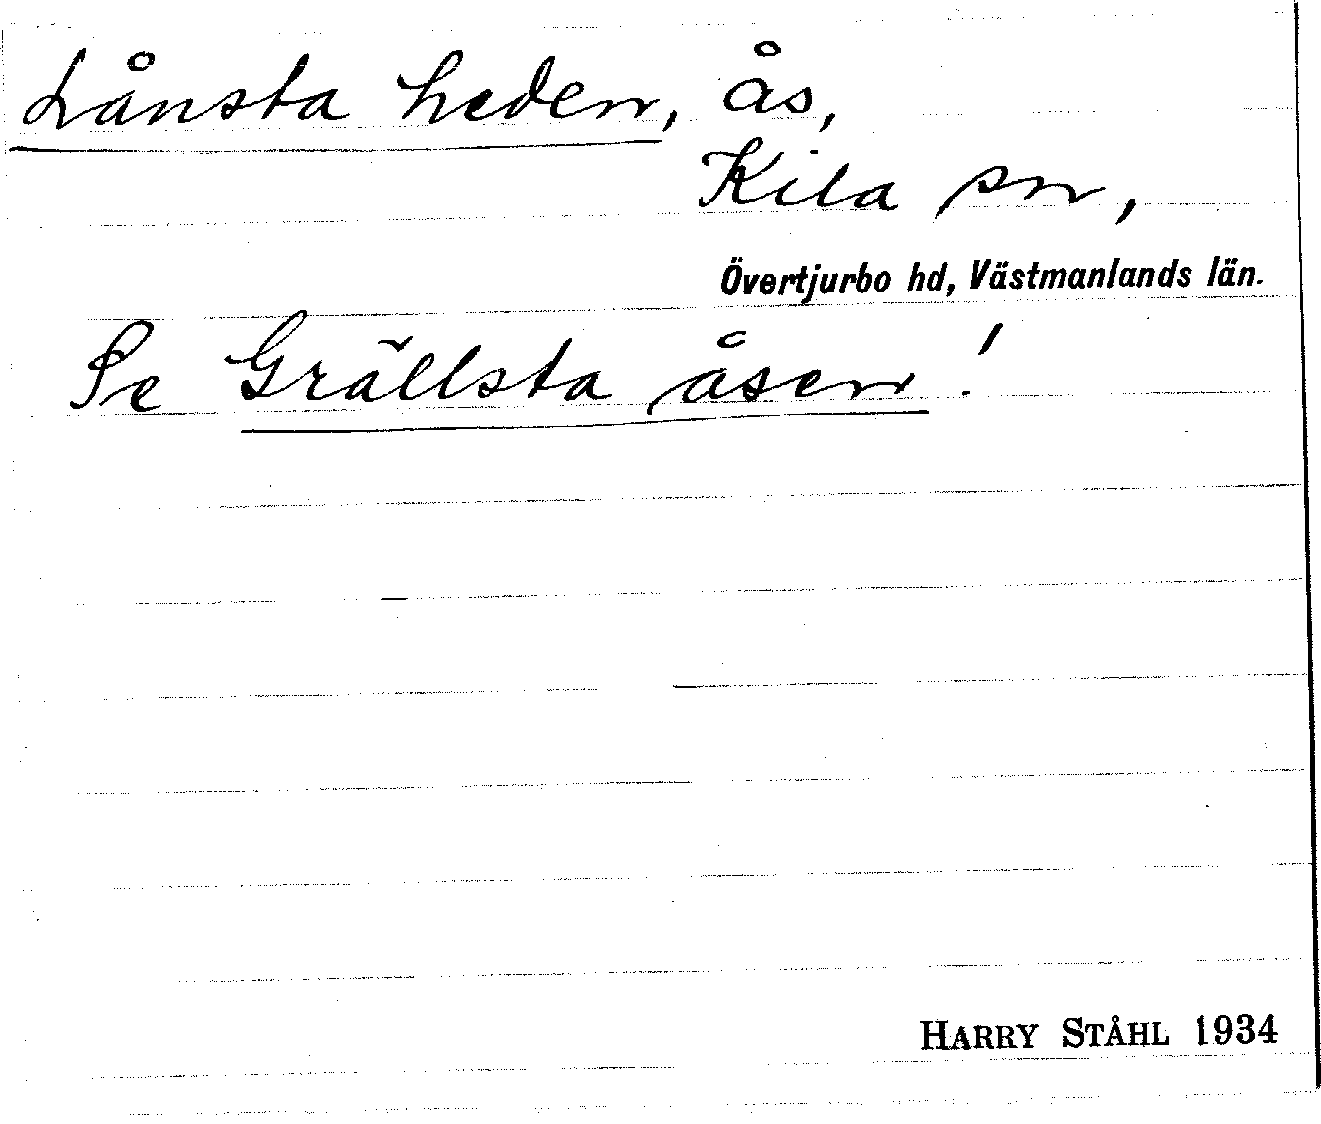 Lånsta heden, ås,
Kila sn,
Övertjurbo hd, Västmanlands län.
Se Grällsta åsen!
HARRY STÅHL 1934